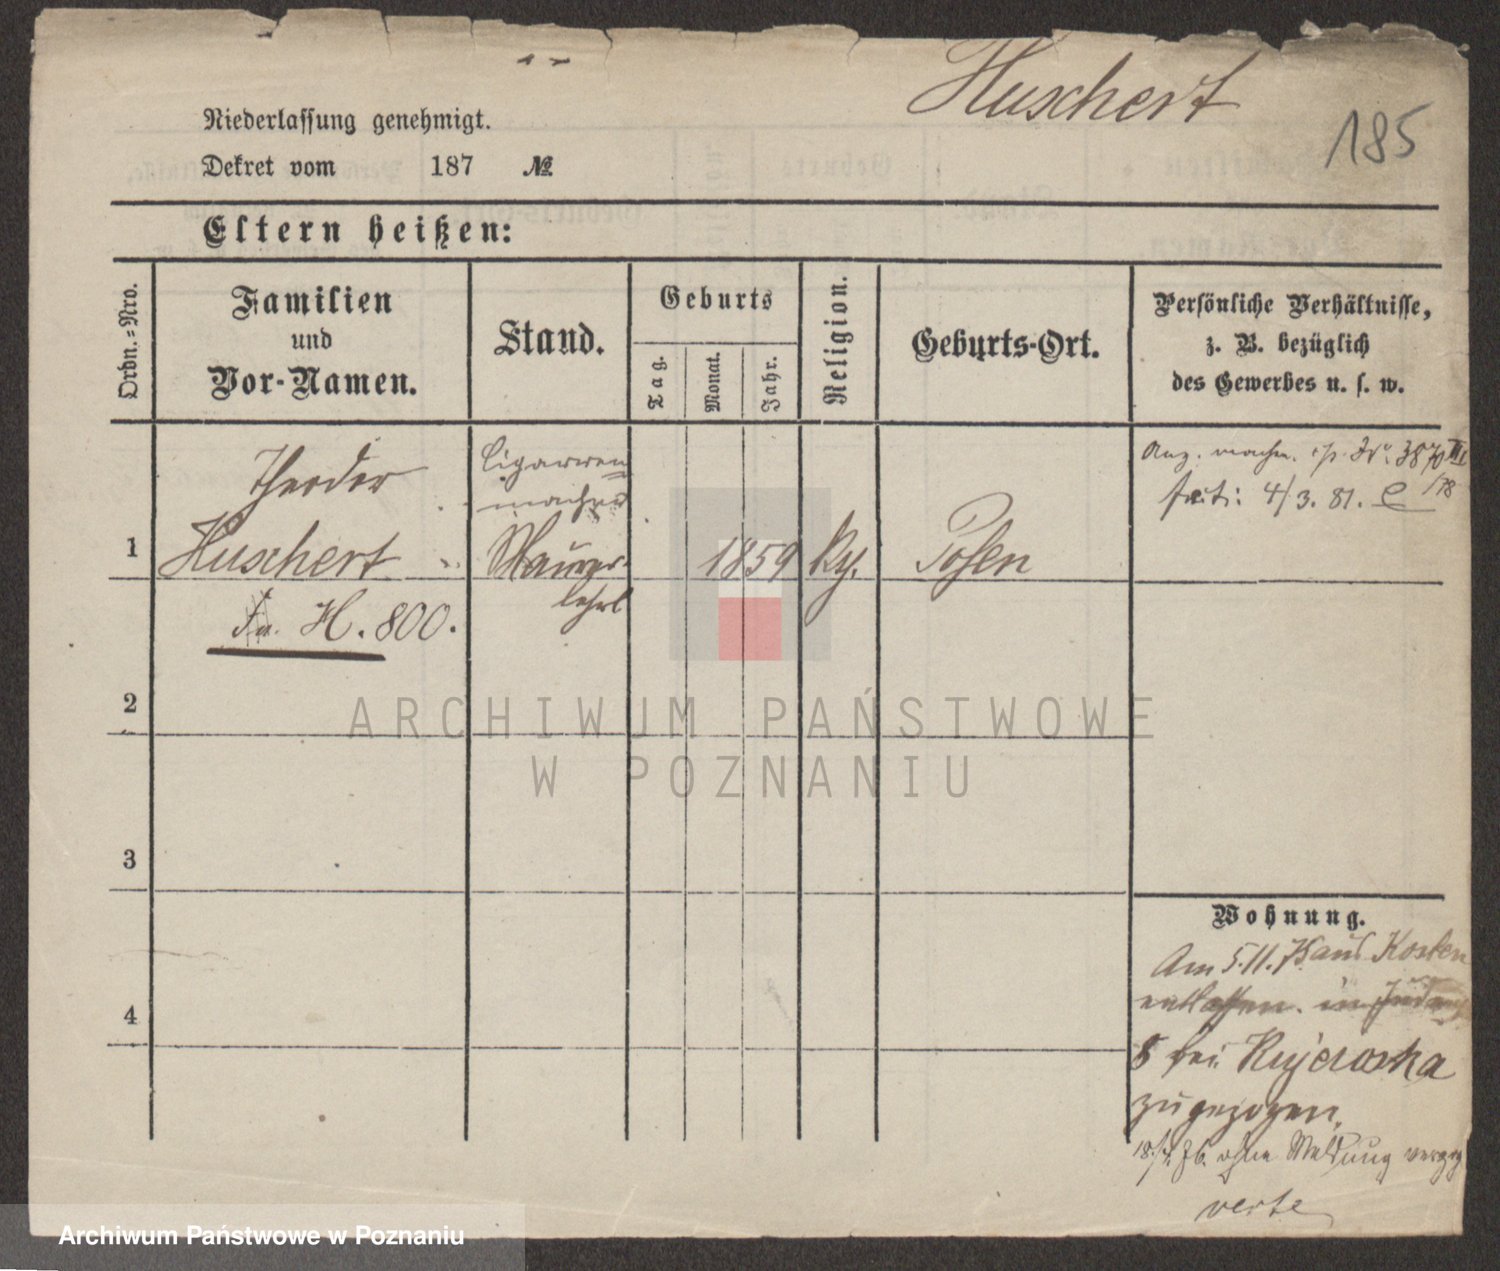 Huschert
185
Niederlassung genehmigt.
Dekret vom 187 №
Eltern heißen:
Ordn.=Nro.
Familien
und
Vor-Namen.
Stand.
Geburts
Tag.
Monat.
Jahr.
Religion.
Geburts-Ort.
Persönliche Verhältnisse,
z. B. bezüglich
des Gewerbes u. s. w.
1
Theodor
Huschert
H. 800.
Cigarren
macher
Maurer
lehrl
1859
Posen
3870 III
/78
4/3. 81.
2
3
4
Wohnung.
Am 5.11.75 aus Kosten
entlassen. in
8 bei Kujawska
zugezogen.
ohne Meldung verzog
verte
ARCHIWUM PAŃSTWOWE
W POZNANIU
Archiwum Państwowe w Poznaniu